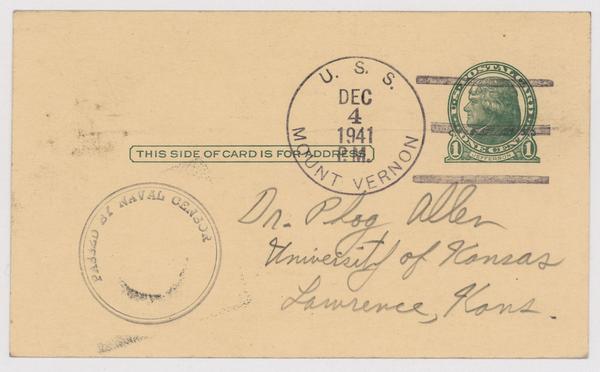 U. S. S.
MOUNT VERNON
DEC
4
1941
P.M.
U.S. POSTAL CARD
1 ONE CENT 1
JEFFERSON
THIS SIDE OF CARD IS FOR ADDRESS
PASSED BY NAVAL CENSOR
Dr. Phog Allen
University of Kansas
Lawrence, Kans.